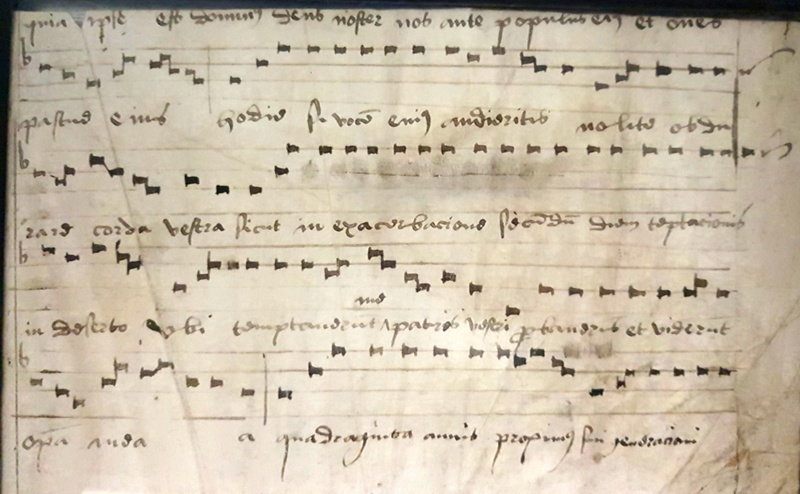 quia ipse est dominus deus noster nos ante populus eius et oves
pascue eius hodie si voce eius audieritis nolite obdu
rare corda vestra sicut in exacerbacione secundu diem teptacionis
me
in deserto ubi temptaverut patres vestri probaverut et viderut
opa mea a quadraginta annis propinquus fui generacioni